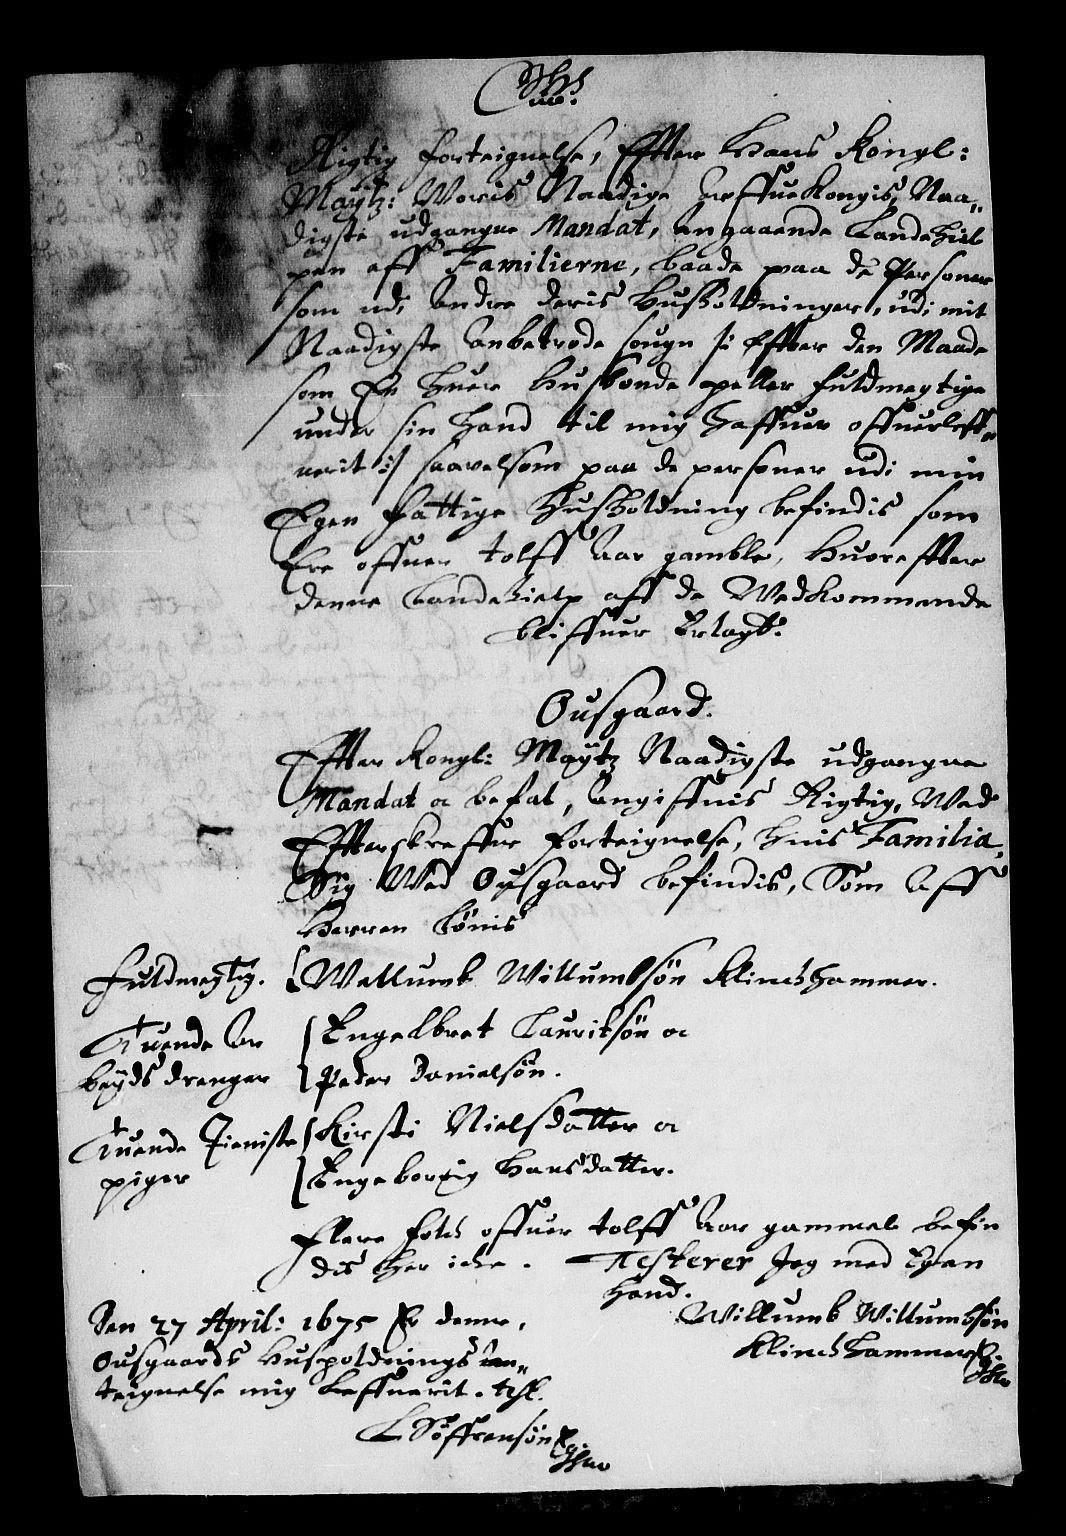 Rigtig Forteignelse, Effter Hans Kongl:
Maÿtz: Woris Naadige arffue Kongis, Naa„
digste udgangne Mandat, angaaende Landehiel
pen aff Familierne, baade paa de Personer
som udi andre deris Hussholdninger, udi mit
Naadigste anbetrode sougn /: Effter den Maade
som En huer Husbonde heller fuldmegtige
under sin Hand til mig haffuer offuerleff„
uerit :/ saavelsom paa de personer udi min
Egen fattige Hussholdning befindis som
Ere offuer tolff aar gamble, Huoreffter
denne Landehielp aff de Wedkommende
bliffuer Erlagt.
Ousgaard.
Effter Kongl: Maÿtz Naadigste udgangne
Mandat oc befal, angiffuis Rigtig, Wed
Effterskreffne Forteignelse, huis Familia,
Sig Wed Ousgaard befindis, Som aff
Herren Lønis
Fuldmegtig. Wellumb Willumbsøn Klinchhammer.
Tuende ar Engelbret Lauritsøn oc
beÿds drenger Peder Danielsøn.
Tuende Tieniste Kirsti Nielsdatter oc
piger Engeborrig Hansdatter.
Flere Folch offuer tolff aar gammel befin
dis her iche. Testerer Jeg med Egen
Hand.
Willumb Willumbsøn
Klinchhammer
Den 27 April: 1675 Er denne,
Ousgaards Hussholdnings an„
teignelse mig leffuerit. test.
L Søffrensøn